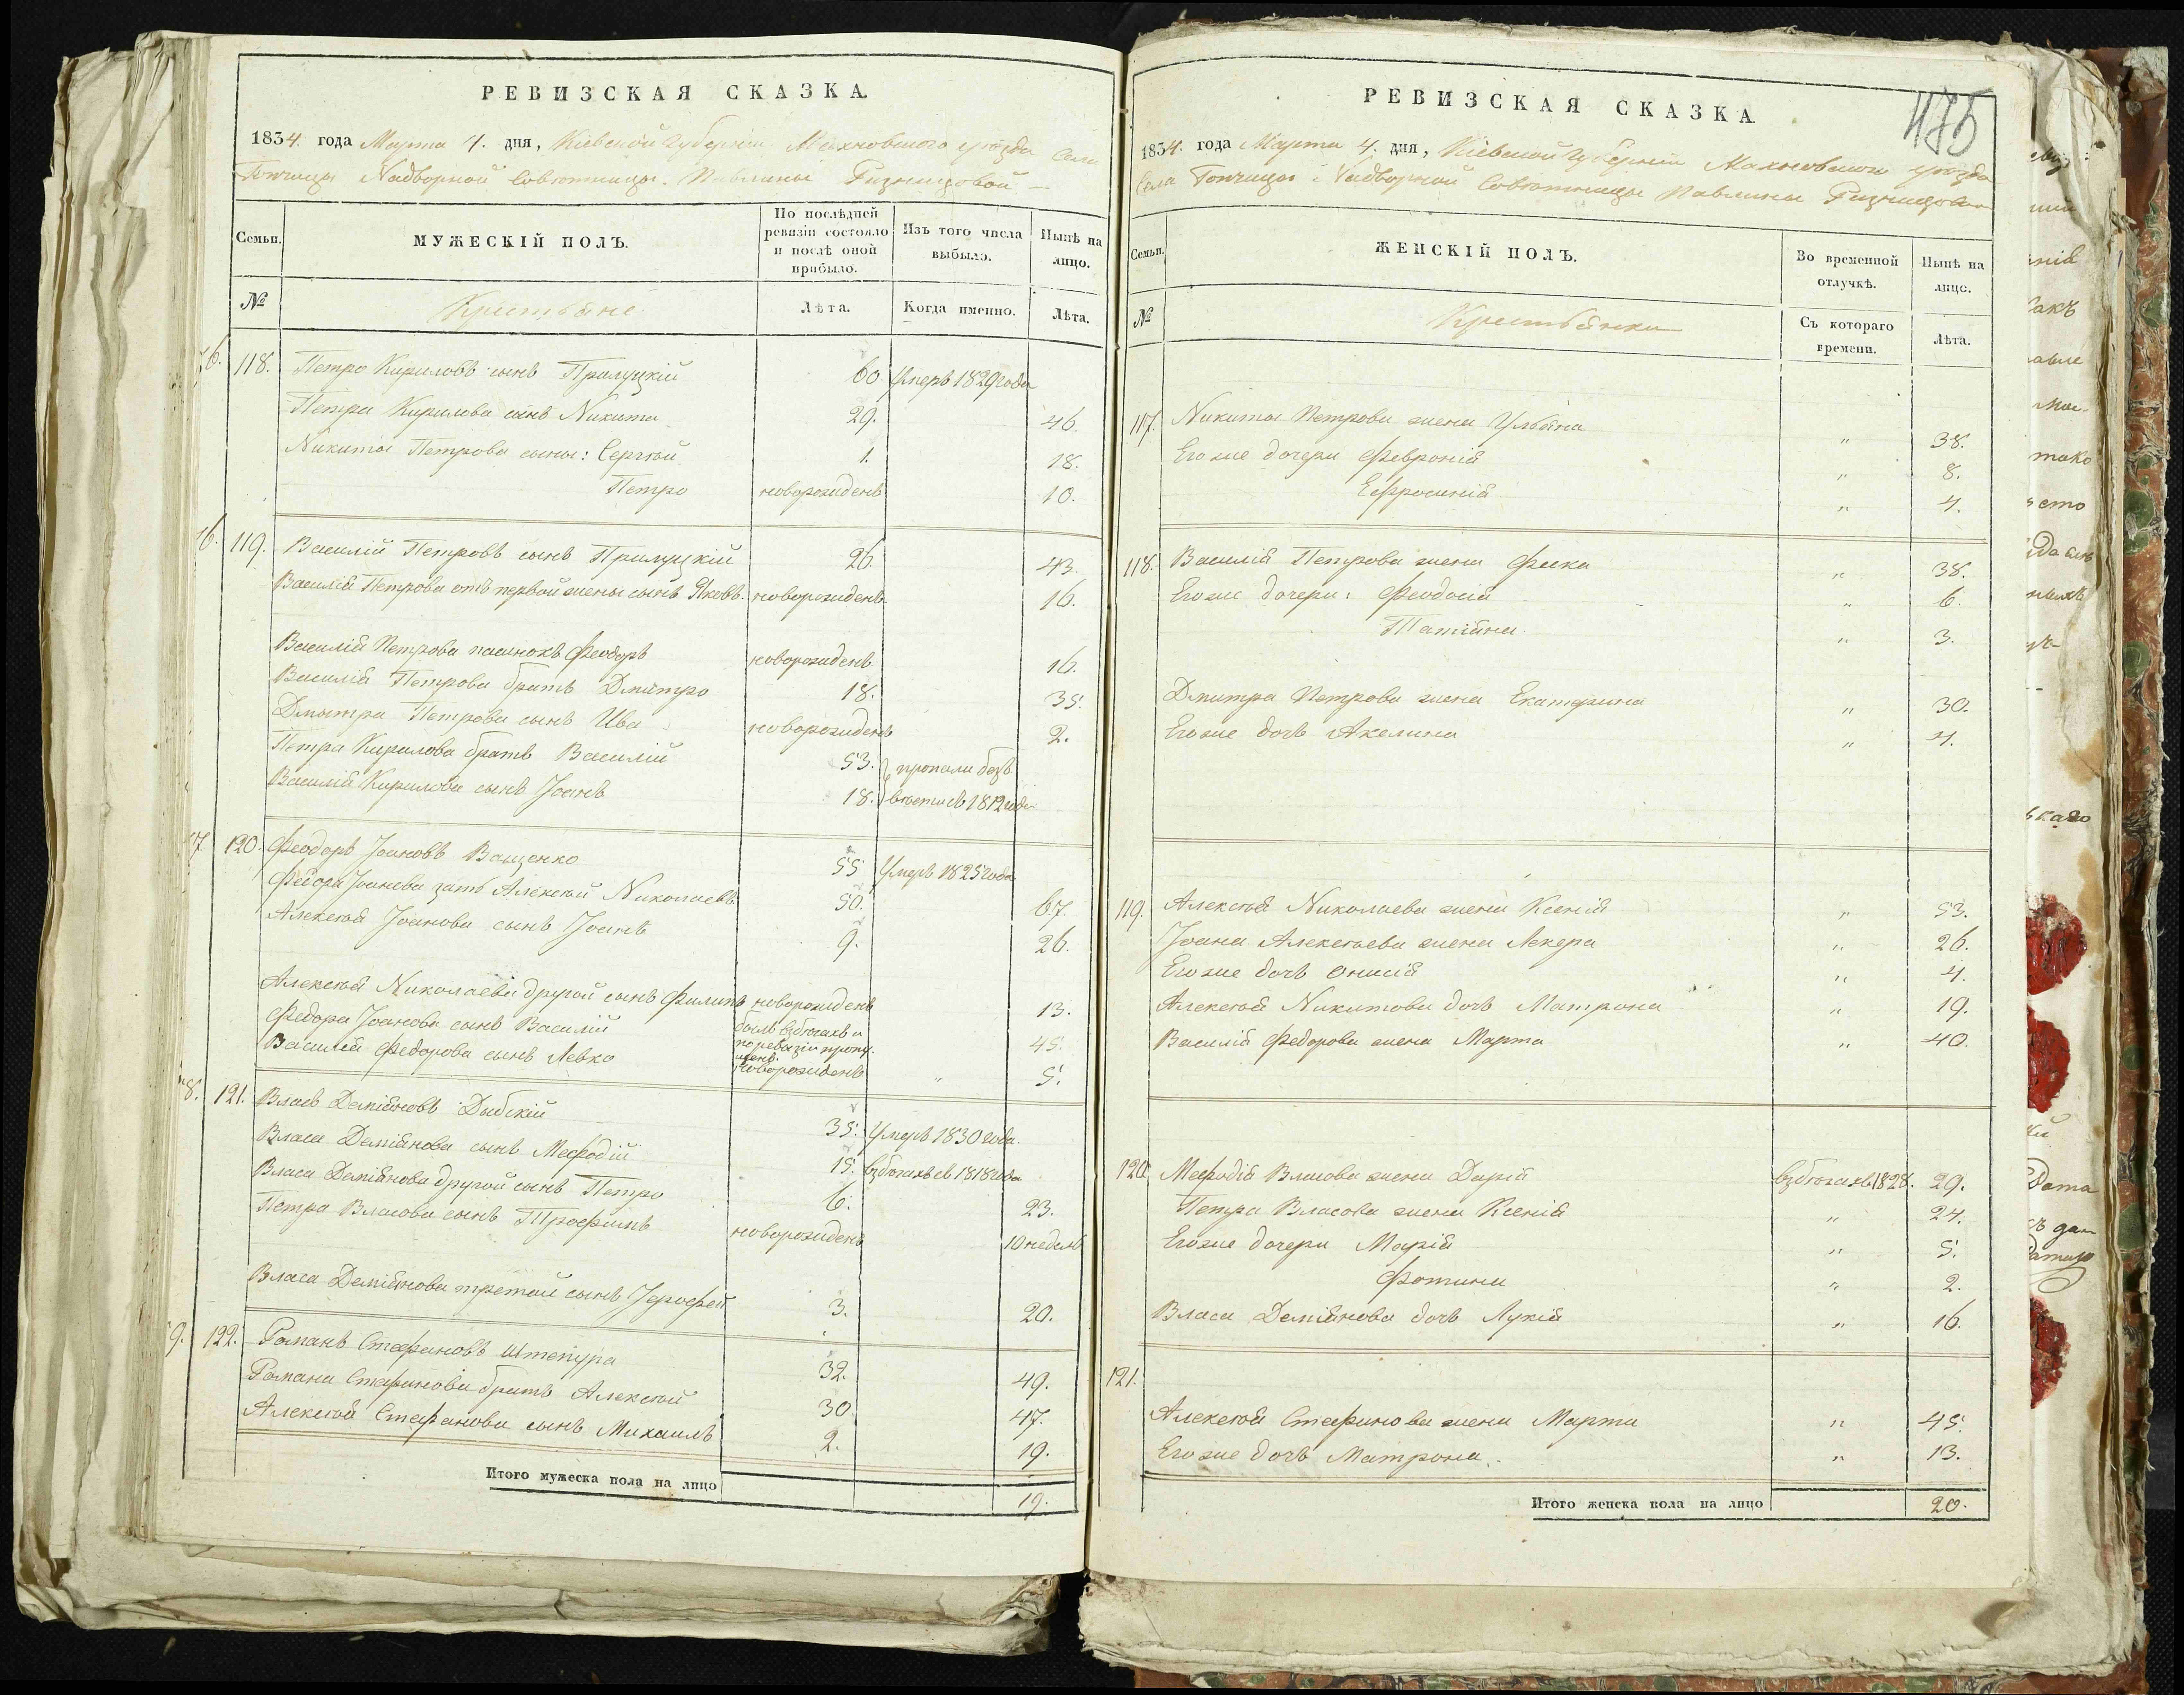 РЕВИЗСКАЯ СКАЗКА
1834. года Марта 4. дня, Кіевской Губерніи Махновского уѣзда Села
Топчицы Надворной Совѣтницы Павлины Ризницовой
Семьи.
МУЖЕСКІЙ ПОЛЪ.
По послѣдней ревизіи состояло и послѣ оной прибыло.
Изъ того числа выбыло.
Нынѣ на лицо.
№
Крестьяне
Лѣта.
Когда именно.
Лѣта.
118. Петро Кириловъ сынъ Прилуцкій 60. Умеръ 1829 года
Петра Кирилова сынъ Никита 29. 46.
Никиты Петрова сыны: Сергѣй 1. 18.
Петро новорожденъ 10.
119. Василій Петровъ сынъ Прилуцкій 26 43.
Василія Петрова отъ первой жены сынъ Яковъ. новорожденъ. 16.
Василія Петрова пасинокъ Феодоръ новорожденъ 16.
Василія Петрова братъ Дмитро 18. 35.
Дмытра Петрова сынъ Ива новорожденъ 2.
Петра Кирилова братъ Василій 53. пропали безъ
Василія Кирилова сынъ Іоанъ 18. вѣсти въ 1812 года
120. Феодоръ Іоановъ Ващенко 55 Умеръ 1825 года
Федора Іоанова зять Алексѣй Николаевъ 50. 67.
Алексѣя Іоанова сынъ Іоанъ 9. 26.
Алексѣя Николаева другой сынъ Филипъ новорожденъ 13.
Федора Іоанова сынъ Василій былъ въ бѣгахъ и по ревизіи пропущенъ. 45.
Василія Федорова сынъ Левко новорожденъ " 5.
121. Власъ Деміяновъ Дыбскій 35. Умеръ 1830 года.
Власа Деміянова сынъ Мефодій 15. въ бѣгахъ съ 1818 года
Власа Деміянова другой сынъ Петро 6. 23.
Петра Власова сынъ Трофимъ новорожденъ 10 недель
Власа Деміянова третій сынъ Іерофей 3. 20.
122. Романъ Стефановъ Штепура 32. 49.
Романа Стефанова братъ Алексѣй 30 47.
Алексѣя Стефанова сынъ Михаилъ 2. 19.
Итого мужеска пола на лицо 19.
475
РЕВИЗСКАЯ СКАЗКА
1834. года Марта 4. дня, Кіевской Губерніи Махновского уѣзда
Села Топчицы Надворной Совѣтницы Павлины Ризницовой
Семьи.
ЖЕНСКІЙ ПОЛЪ.
Во временной отлучкѣ.
Нынѣ на лицо.
№
Крестьянки
Съ котораго времени.
Лѣта.
117. Никиты Петрова жена Ульяна " 38.
Его же дочери Февронія " 8.
Ефросинія " 4.
118. Василія Петрова жена Феска " 38.
Его же дочери: Феодосія " 6.
Татіяна " 3.
Дмитра Петрова жена Екатерина " 30.
Его же дочь Акелина " 4.
119. Алексѣя Николаева жена Ксенія " 53.
Іоана Алексѣева жена Лекера " 26.
Его же дочь Онисія " 4.
Алексѣя Никитова дочь Матрона " 19.
Василія Федорова жена Марта " 40.
120. Мефодія Власова жена Дарія въ бѣгахъ 1828. 29.
Петра Власова жена Ксенія " 24.
Его же дочери Марія " 5.
Фотина " 2.
Власа Деміянова дочь Лукія " 16.
121.
Алексѣя Стефанова жена Марта " 45.
Его же дочь Матрона. " 13.
Итого женска пола на лицо 20.